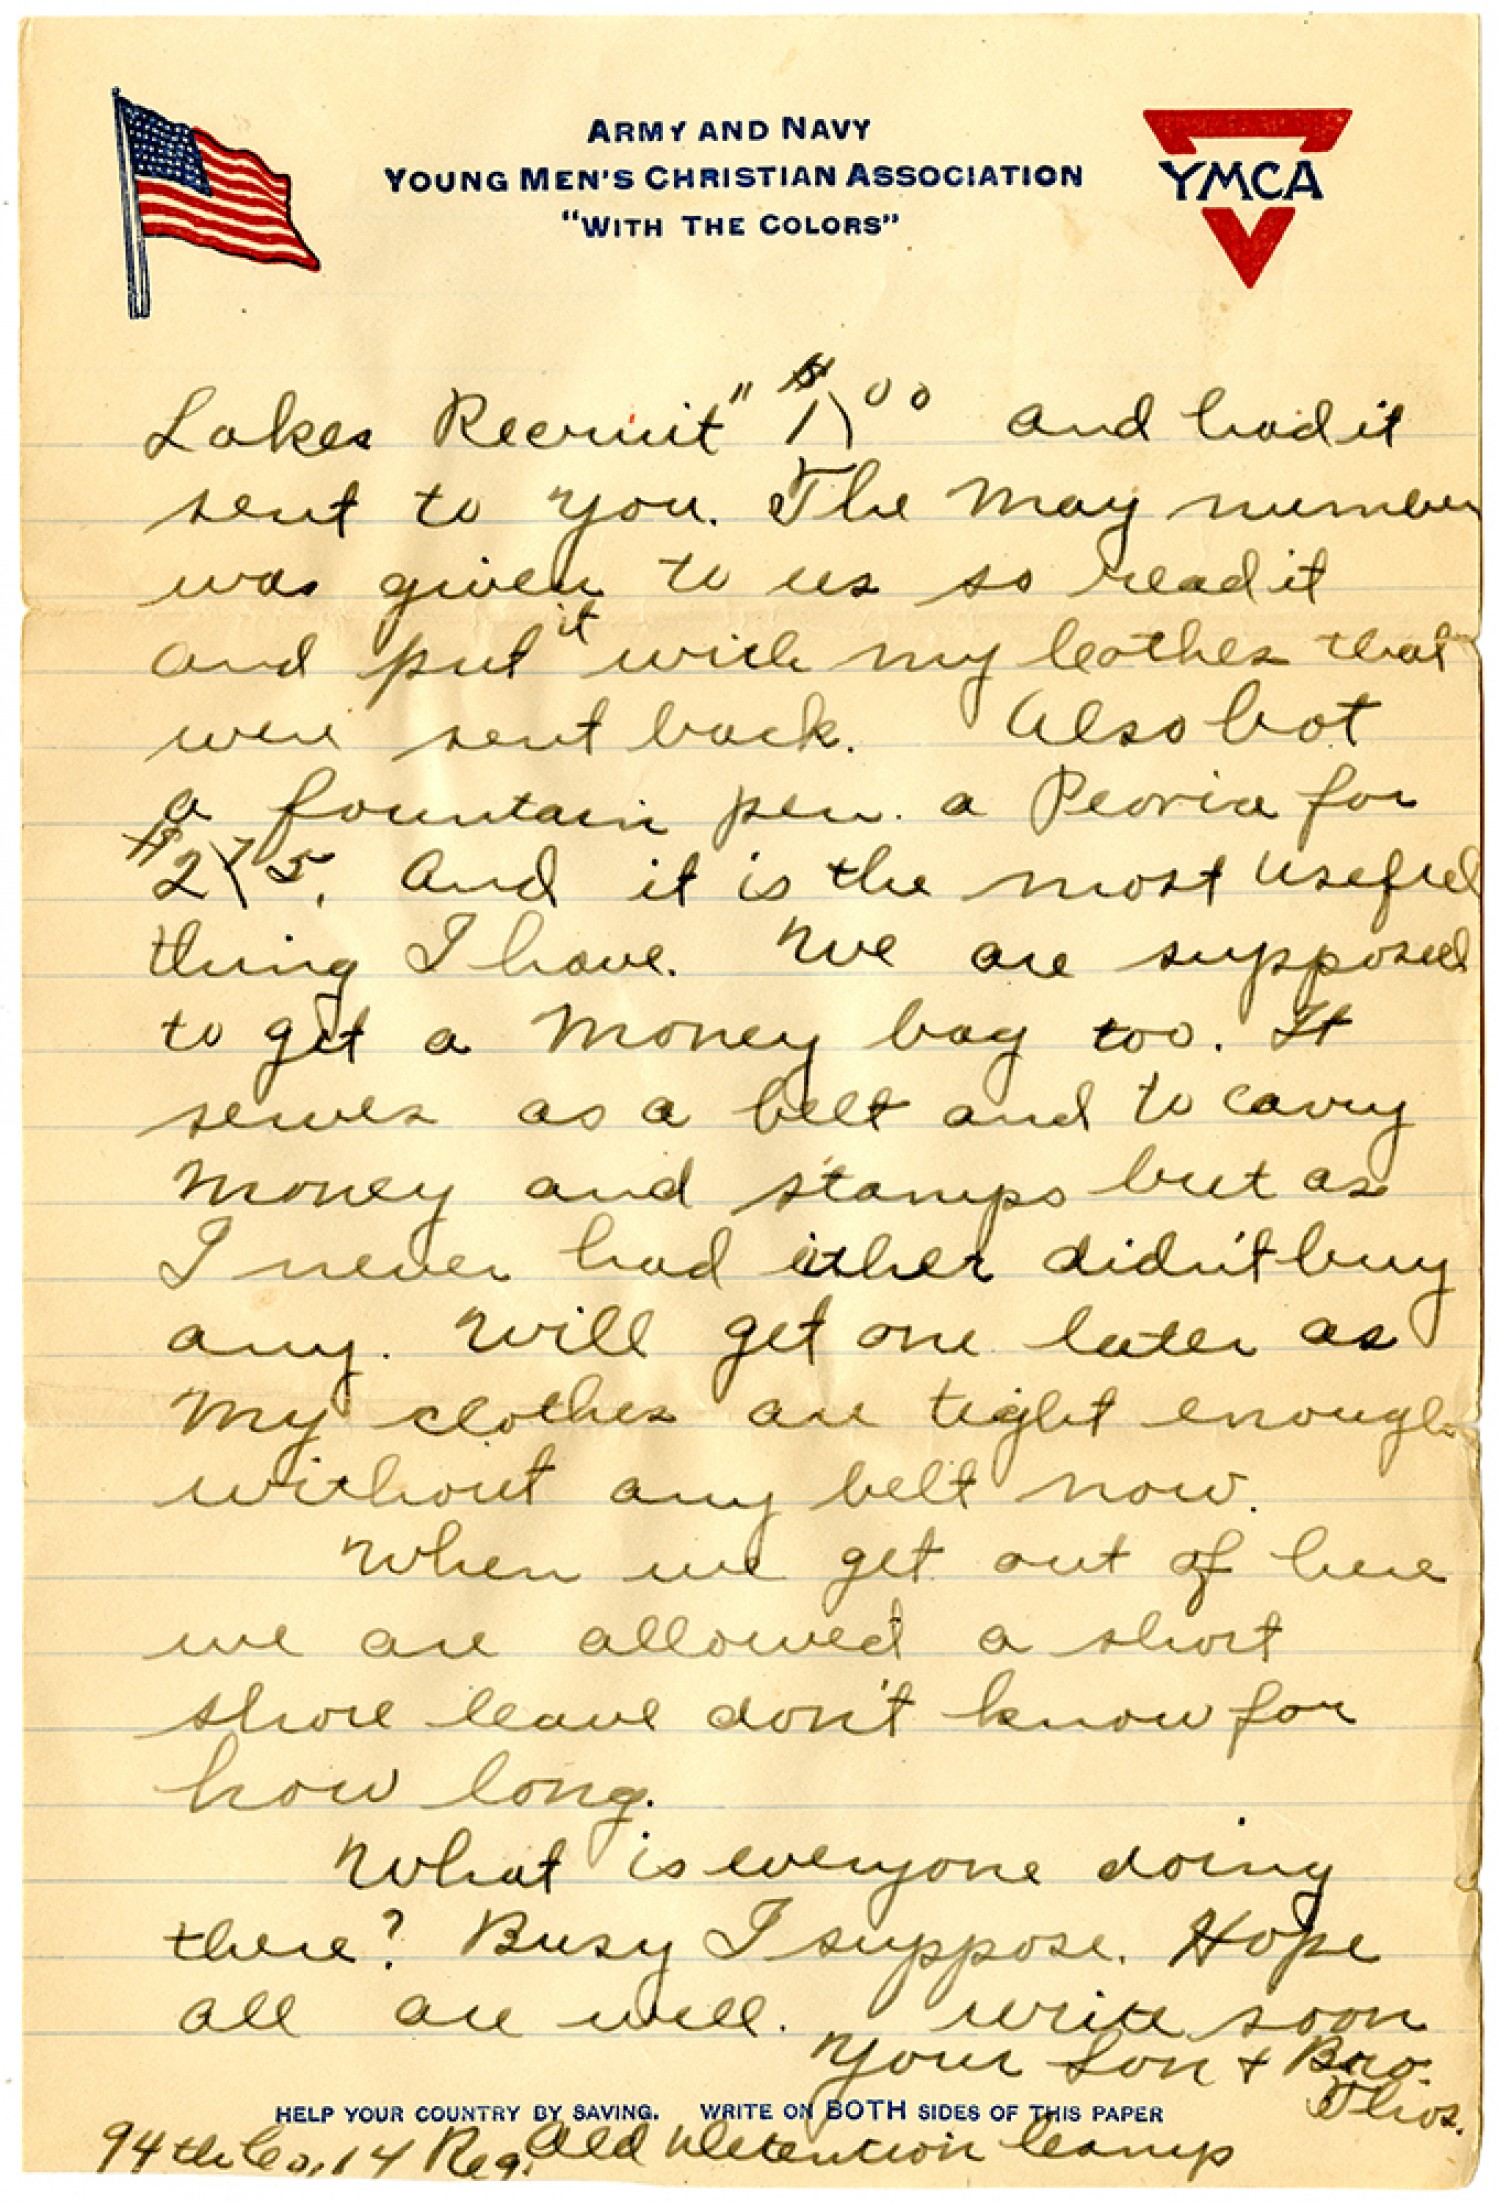 ARMY AND NAVY
YOUNG MEN'S CHRISTIAN ASSOCIATION
"WITH THE COLORS"
YMCA
Lakes Recruit" $1\00 and had it
sent to you. The May number
was given to us so read it
and put it with my clothes that
were sent back. Also bot
a fountain pen. a Peoria for
$2\75. And it is the most useful
thing I have. We are supposed
to get a money bag too. It
serves as a belt and to carry
money and stamps but as
I never had either didn't buy
any. Will get one later as
my clothes are tight enough
without any belt now.
When we get out of here
we are allowed a short
shore leave don't know for
how long.
What is everyone doing
there? Busy I suppose. Hope
all are well. Write soon
Your Son + Bro.
Thos.
HELP YOUR COUNTRY BY SAVING. WRITE ON BOTH SIDES OF THIS PAPER
94th Co, 14 Reg. Old Detention Camp